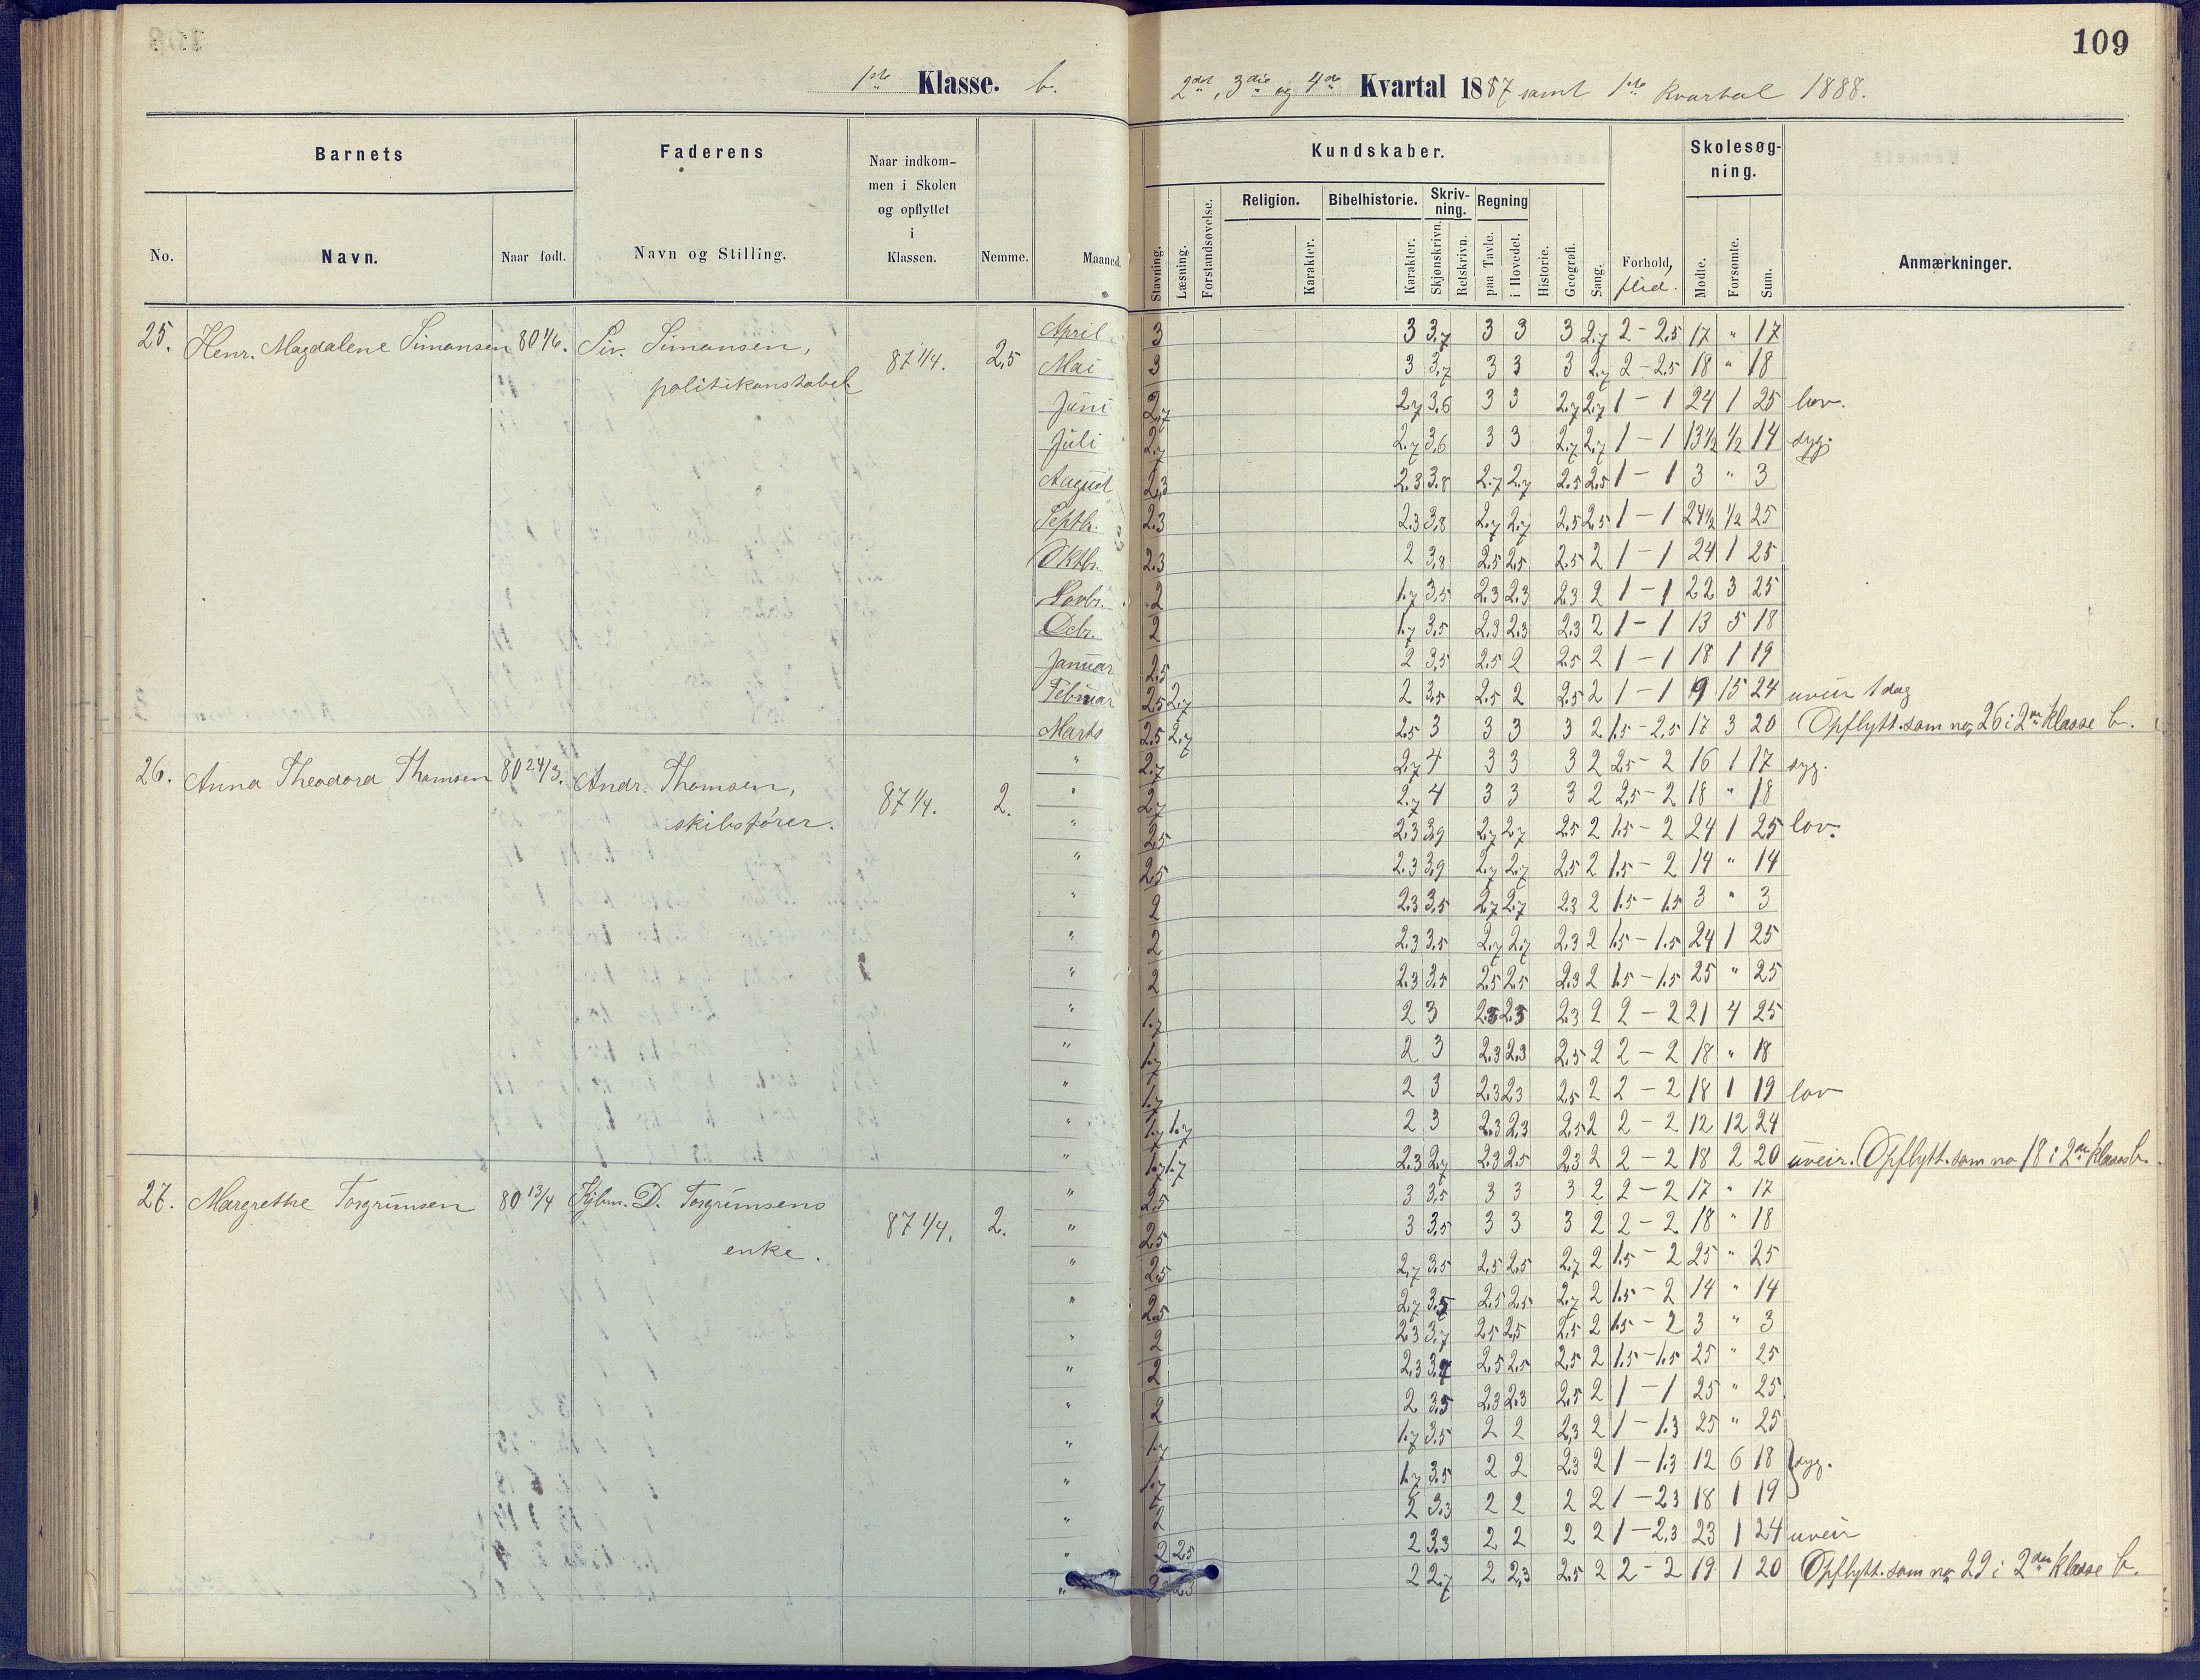 109
1ste Klasse. b.
2det, 3die og 4de Kvartal 1887 samt 1ste Kvartal 1888.
Barnets
Faderens
Naar indkom-
men i Skolen
og opflyttet
i
Klassen.
Kundskaber.
Skolesøg-
ning.
Religion. Bibelhistorie. Skriv-
ning. Regning
No. Navn. Naar født. Navn og Stilling. Nemme. Maaned. Stavning. Læsning. Forstandsøvelse. Karakter. Karakter. Skjønskrivn. Retskrivn. paa Tavle. i Hovedet. Historie. Geografi. Sang. Forhold, flid. Mødte. Forsømte. Sum. Anmærkninger.
25. Henr. Magdalene Simonsen 80 1/6. Siv. Simonsen, 87 1/4. 2,5 April 3 3 3,7 3 3 3 2,7 2 - 2,5 17 " 17
politikonstabel Mai 3 3 3,7 3 3 3 2,7 2 - 2,5 18 " 18
Juni 2,7 2,7 3,6 3 3 2,7 2,7 1 - 1 24 1 25 lov.
Juli 2,7 2,7 3,6 3 3 2,7 2,7 1 - 1 13 1/2 1/2 14 syg.
August 2,3 2,3 3,8 2,7 2,7 2,5 2,5 1 - 1 3 " 3
Septbr. 2,3 2,3 3,8 2,7 2,7 2,5 2,5 1 - 1 24 1/2 1/2 25
Oktbr. 2,3 2 3,8 2,5 2,5 2,5 2 1 - 1 24 1 25
Novbr. 2 1,7 3,5 2,3 2,3 2,3 2 1 - 1 22 3 25
Decbr. 2 1,7 3,5 2,3 2,3 2,3 2 1 - 1 13 5 18
Januar 2,5 2 3,5 2,5 2 2,5 2 1 - 1 18 1 19
Februar 2,5 2,7 2 3,5 2,5 2 2,5 2 1 - 1 9 15 24 uveir 1 dag
Marts 2,5 2,7 2,5 3 3 3 3 2 1,5 - 2,5 17 3 20 Opflytt. som no 26 i 2den klasse b.
26. Anna Theodora Thomsen 80 24/3. Andr. Thomsen, 87 1/4. 2. " 2,7 2,7 4 3 3 3 2 2,5 - 2 16 1 17 syg.
skibsfører. " 2,7 2,7 4 3 3 3 2 2,5 - 2 18 " 18
" 2,5 2,3 3,9 2,7 2,7 2,5 2 1,5 - 2 24 1 25 lov.
" 2,5 2,3 3,9 2,7 2,7 2,5 2 1,5 - 2 14 " 14
" 2 2,3 3,5 2,7 2,7 2,3 2 1,5 - 1,5 3 " 3
" 2 2,3 3,5 2,7 2,7 2,3 2 1,5 - 1,5 24 1 25
" 2 2,3 3,5 2,5 2,5 2,3 2 1,5 - 1,5 25 " 25
" 1,7 2 3 2,3 2,3 2,3 2 2 - 2 21 4 25
" 1,7 2 3 2,3 2,3 2,5 2 2 - 2 18 " 18
" 1,7 2 3 2,3 2,3 2,5 2 2 - 2 18 1 19 lov
" 1,7 1,7 2 3 2,3 2,3 2,5 2 2 - 2 12 12 24
" 1,7 1,7 2,3 2,7 2,3 2,5 2,3 2 2 - 2 18 2 20 uveir. Opflytt. som no 18 i 2den klasse b.
27. Margrethe Torgrimsen 80 13/4 Kjbm. D. Torgrimsens 87 1/4. 2. " 2,5 3 3,5 3 3 3 2 2 - 2 17 " 17
enke. " 2,5 3 3,5 3 3 3 2 2 - 2 18 " 18
" 2,5 2,7 3,5 2,5 2,5 2,7 2 1,5 - 2 25 " 25
" 2,5 2,7 3,5 2,5 2,5 2,7 2 1,5 - 2 14 " 14
" 2 2,3 3,7 2,5 2,5 2,5 2 1,5 - 2 3 " 3
" 2 2,3 3,7 2,5 2,5 2,5 2 1,5 - 1,5 25 " 25
" 2 2 3,5 2,3 2,3 2,5 2 1 - 1 25 " 25
" 1,7 1,7 3,5 2 2 2,3 2 1 - 1,3 25 " 25
" 1,7 1,7 3,5 2 2 2,3 2 1 - 1,3 12 6 18 syg.
" 2 2 3,3 2 2 2 2 1 - 2,3 18 1 19
" 2 2,5 2 3,3 2 2 2 2 1 - 2,3 23 1 24 uveir
" 2 2,3 2 2,7 2 2,3 2,5 2 2 - 2 19 1 20 Opflytt. som no 29 i 2den klasse b.